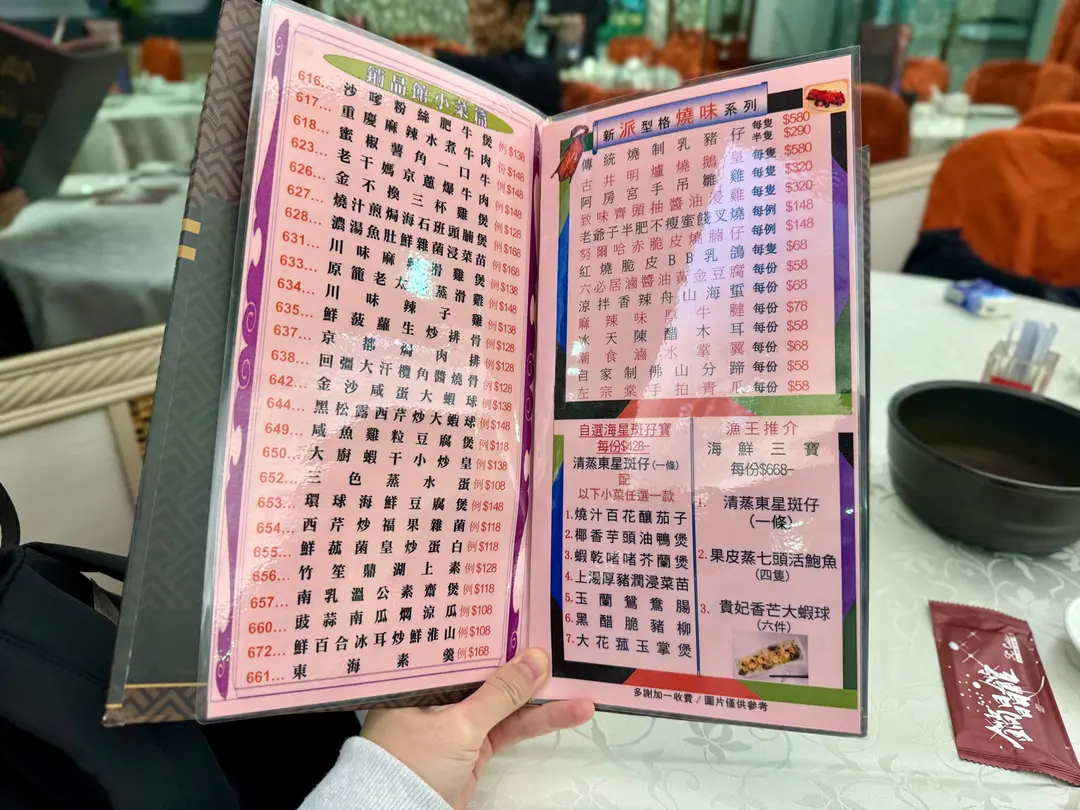 鍋品館小菜篇
616... 沙嗲粉絲肥牛煲 例$138
617... 重慶麻辣水煮牛肉 例$148
618... 蜜椒薯角一口牛 例$148
623... 老干媽京蔥爆牛肉 例$148
626... 金不換三杯雞煲 例$128
627... 燒汁煎焗海石斑腩煲 例$168
628... 濃湯魚肚鮮雜菌浸菜苗 例$168
631... 川味麻辣滑雞煲 例$138
633... 原籠老大蒸滑雞
634... 川味辣子雞 例$138
635... 鮮菠蘿生炒排骨 例$128
637... 京都焗肉排 例$128
638... 回彊大汗欖角醬燒骨 例$128
642... 金沙咸蛋大蝦球 例$138
644... 黑松露西芹炒大蝦球 例$148
649... 咸魚雞粒豆腐煲 例$118
650... 大廚蝦干小炒皇 例$138
652... 三色蒸水蛋 例$108
653... 環球海鮮豆腐煲 例$148
654... 西芹炒福果雜菌 例$118
655... 鮮菰菌皇炒蛋白 例$118
656... 竹笙鼎湖上素 例$128
657... 南乳溫公素齋煲 例$118
660... 豉蒜南瓜燜涼瓜 例$108
672... 鮮百合冰耳炒鮮淮山 例$108
661... 東海素羹 例$168
新派型格燒味系列
傳統燒制乳豬仔 每隻$580
半隻$290
古井明爐燒鵝皇 每隻$580
阿房宮手吊雛雞 每隻$320
致味齊頭抽醬油浸雞 每隻$320
老爺子半肥不瘦蜜餞叉燒 每例$148
努爾哈赤脆皮燒腩仔 每例$148
紅燒脆皮BB乳鴿 每隻$68
六必居滷醬油黃金豆腐 每份$58
涼拌香辣舟山海蜇 每份$68
麻辣味厚牛腱 每份$78
冰天陳醋木耳 每份$58
潮食滷水掌翼 每份$68
自家制佛山分蹄 每份$58
左宗棠手拍青瓜 每份$58
自選海星斑孖寶
每份$428-
清蒸東星斑仔(一條)
配
以下小菜任選一款
1.燒汁百花釀茄子
2.椰香芋頭油鴨煲
3.蝦乾啫啫芥蘭煲
4.上湯厚豬潤浸菜苗
5.玉蘭鴛鴦腸
6.黑醋脆豬柳
7.大花菰玉掌煲
漁王推介
海鮮三寶
每份$668-
1. 清蒸東星斑仔
(一條)
2.果皮蒸七頭活鮑魚
(四隻)
3. 貴妃香芒大蝦球
(六件)
多謝加一收費 / 圖片僅供參考